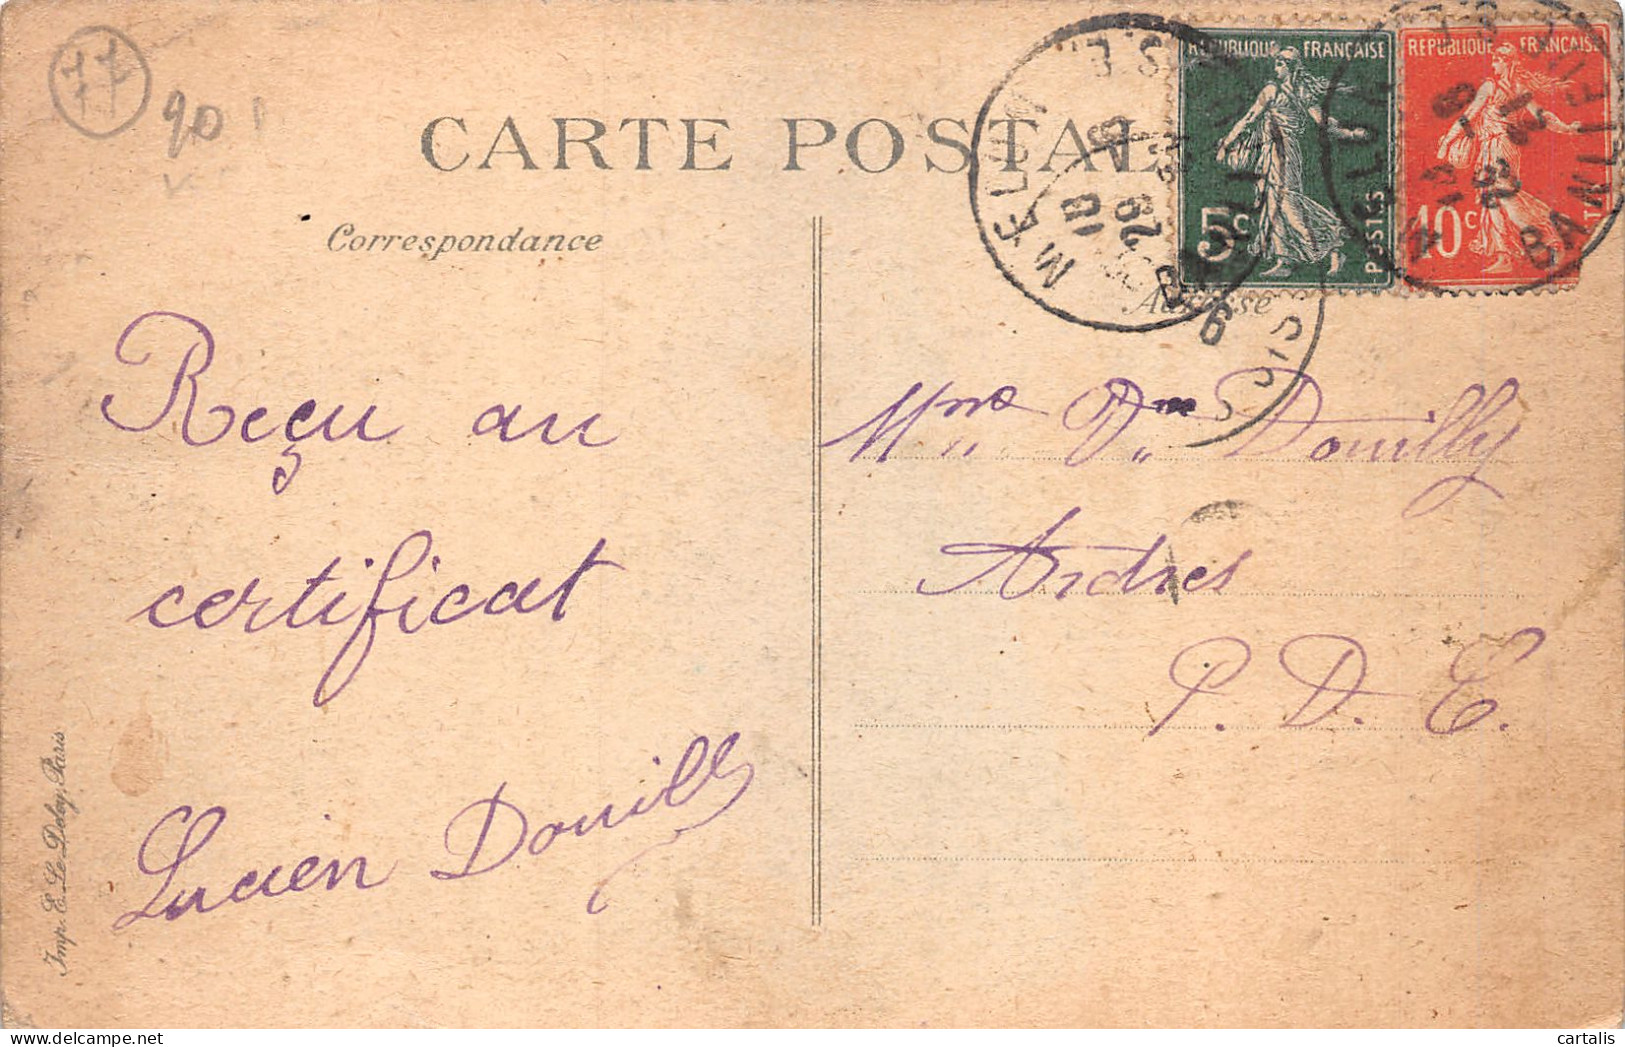 77
90
CARTE POSTALE
Correspondance
Adresse
REPUBLIQUE FRANÇAISE
5c
POSTES
REPUBLIQUE FRANÇAISE
10c
MELUN
Reçu au
certificat
Lucien Douilly
Mme Dme Douilly
Ardres
P. D. C.
Imp. E. Le Deley, Paris
cartalis